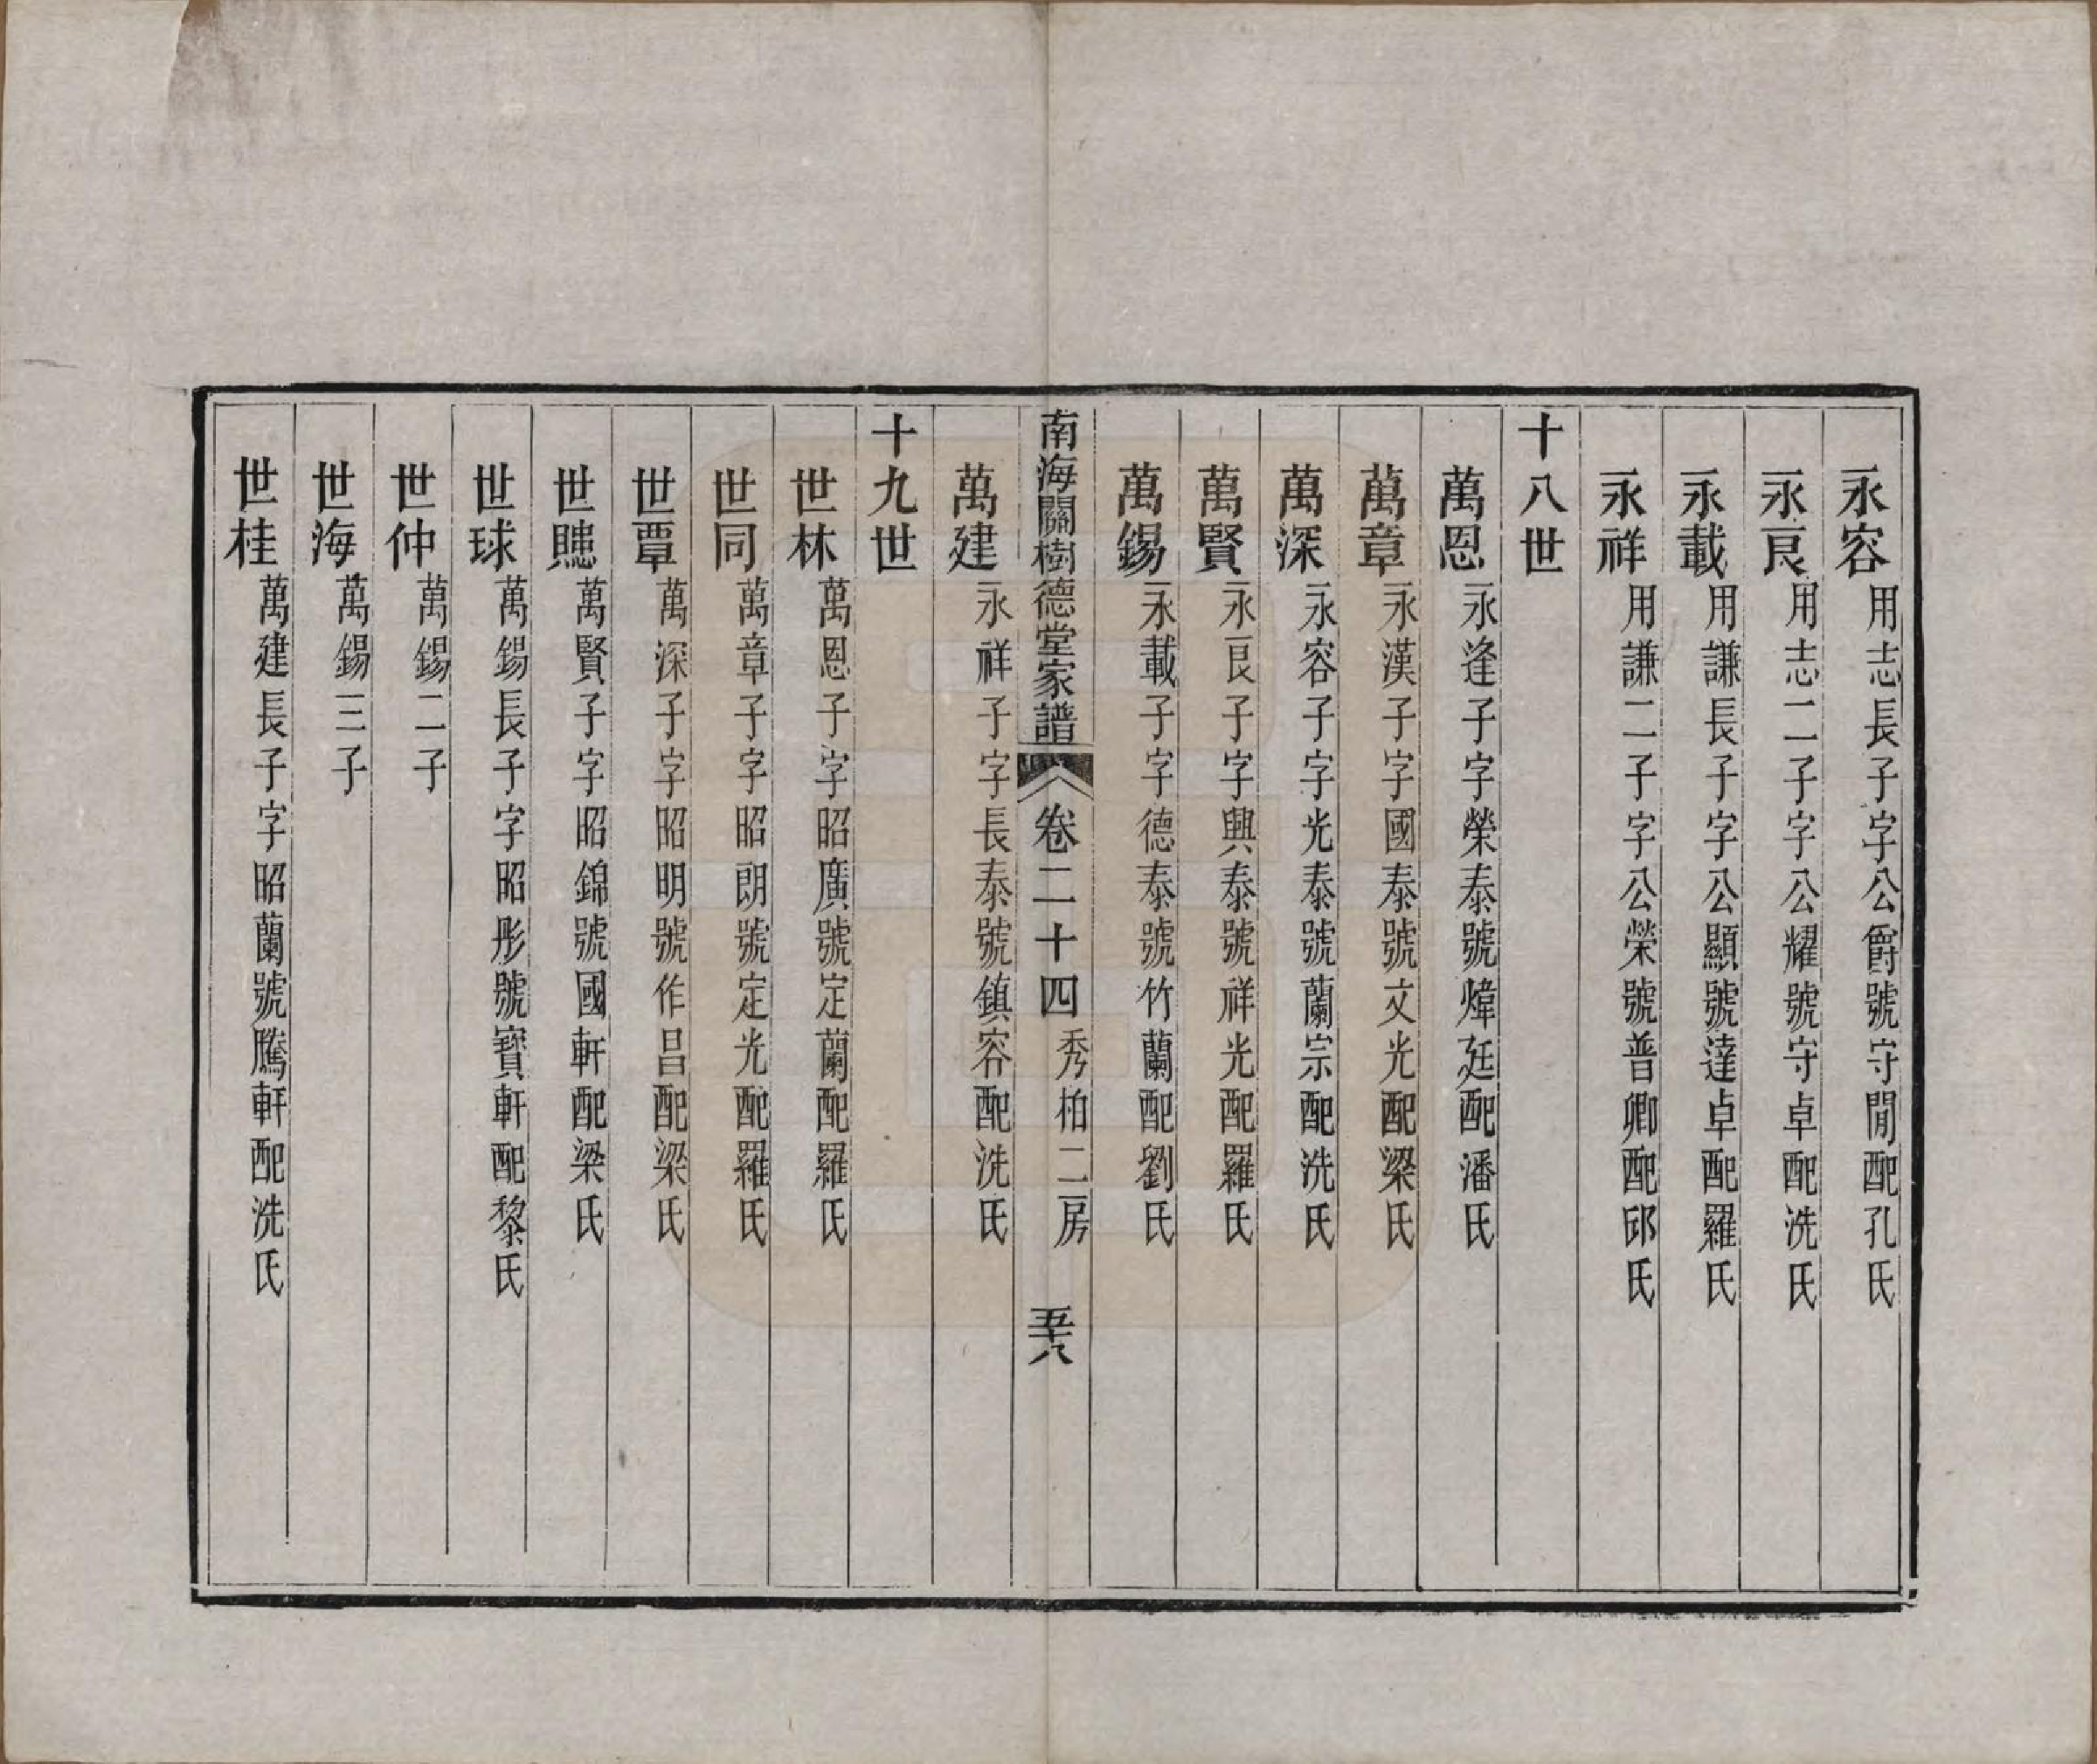 永容用志長子字公爵號守閒配孔氏
永良用志二子字公耀號守卓配冼氏
永載用謙長子字公顯號達卓配羅氏
永祥用謙二子字公榮號普卿配邱氏
十八世
萬恩永逢子字榮泰號煒廷配潘氏
萬章永漢子字國泰號文光配梁氏
萬深永容子字光泰號蘭宗配冼氏
萬賢永良子字興泰號祥光配羅氏
萬錫永載子字德泰號竹蘭配劉氏
南海關樹德堂家譜 卷二十四 秀柏二房 五十八
萬建永祥子字長泰號鎮容配冼氏
十九世
世林萬恩子字昭廣號定蘭配羅氏
世同萬章子字昭朗號定光配羅氏
世覃萬深子字昭明號作昌配梁氏
世萬賢子字昭錦號國軒配梁氏
世球萬錫長子字昭彤號寶軒配黎氏
世仲萬錫二子
世海萬錫三子
世桂萬建長子字昭蘭號騰軒配冼氏